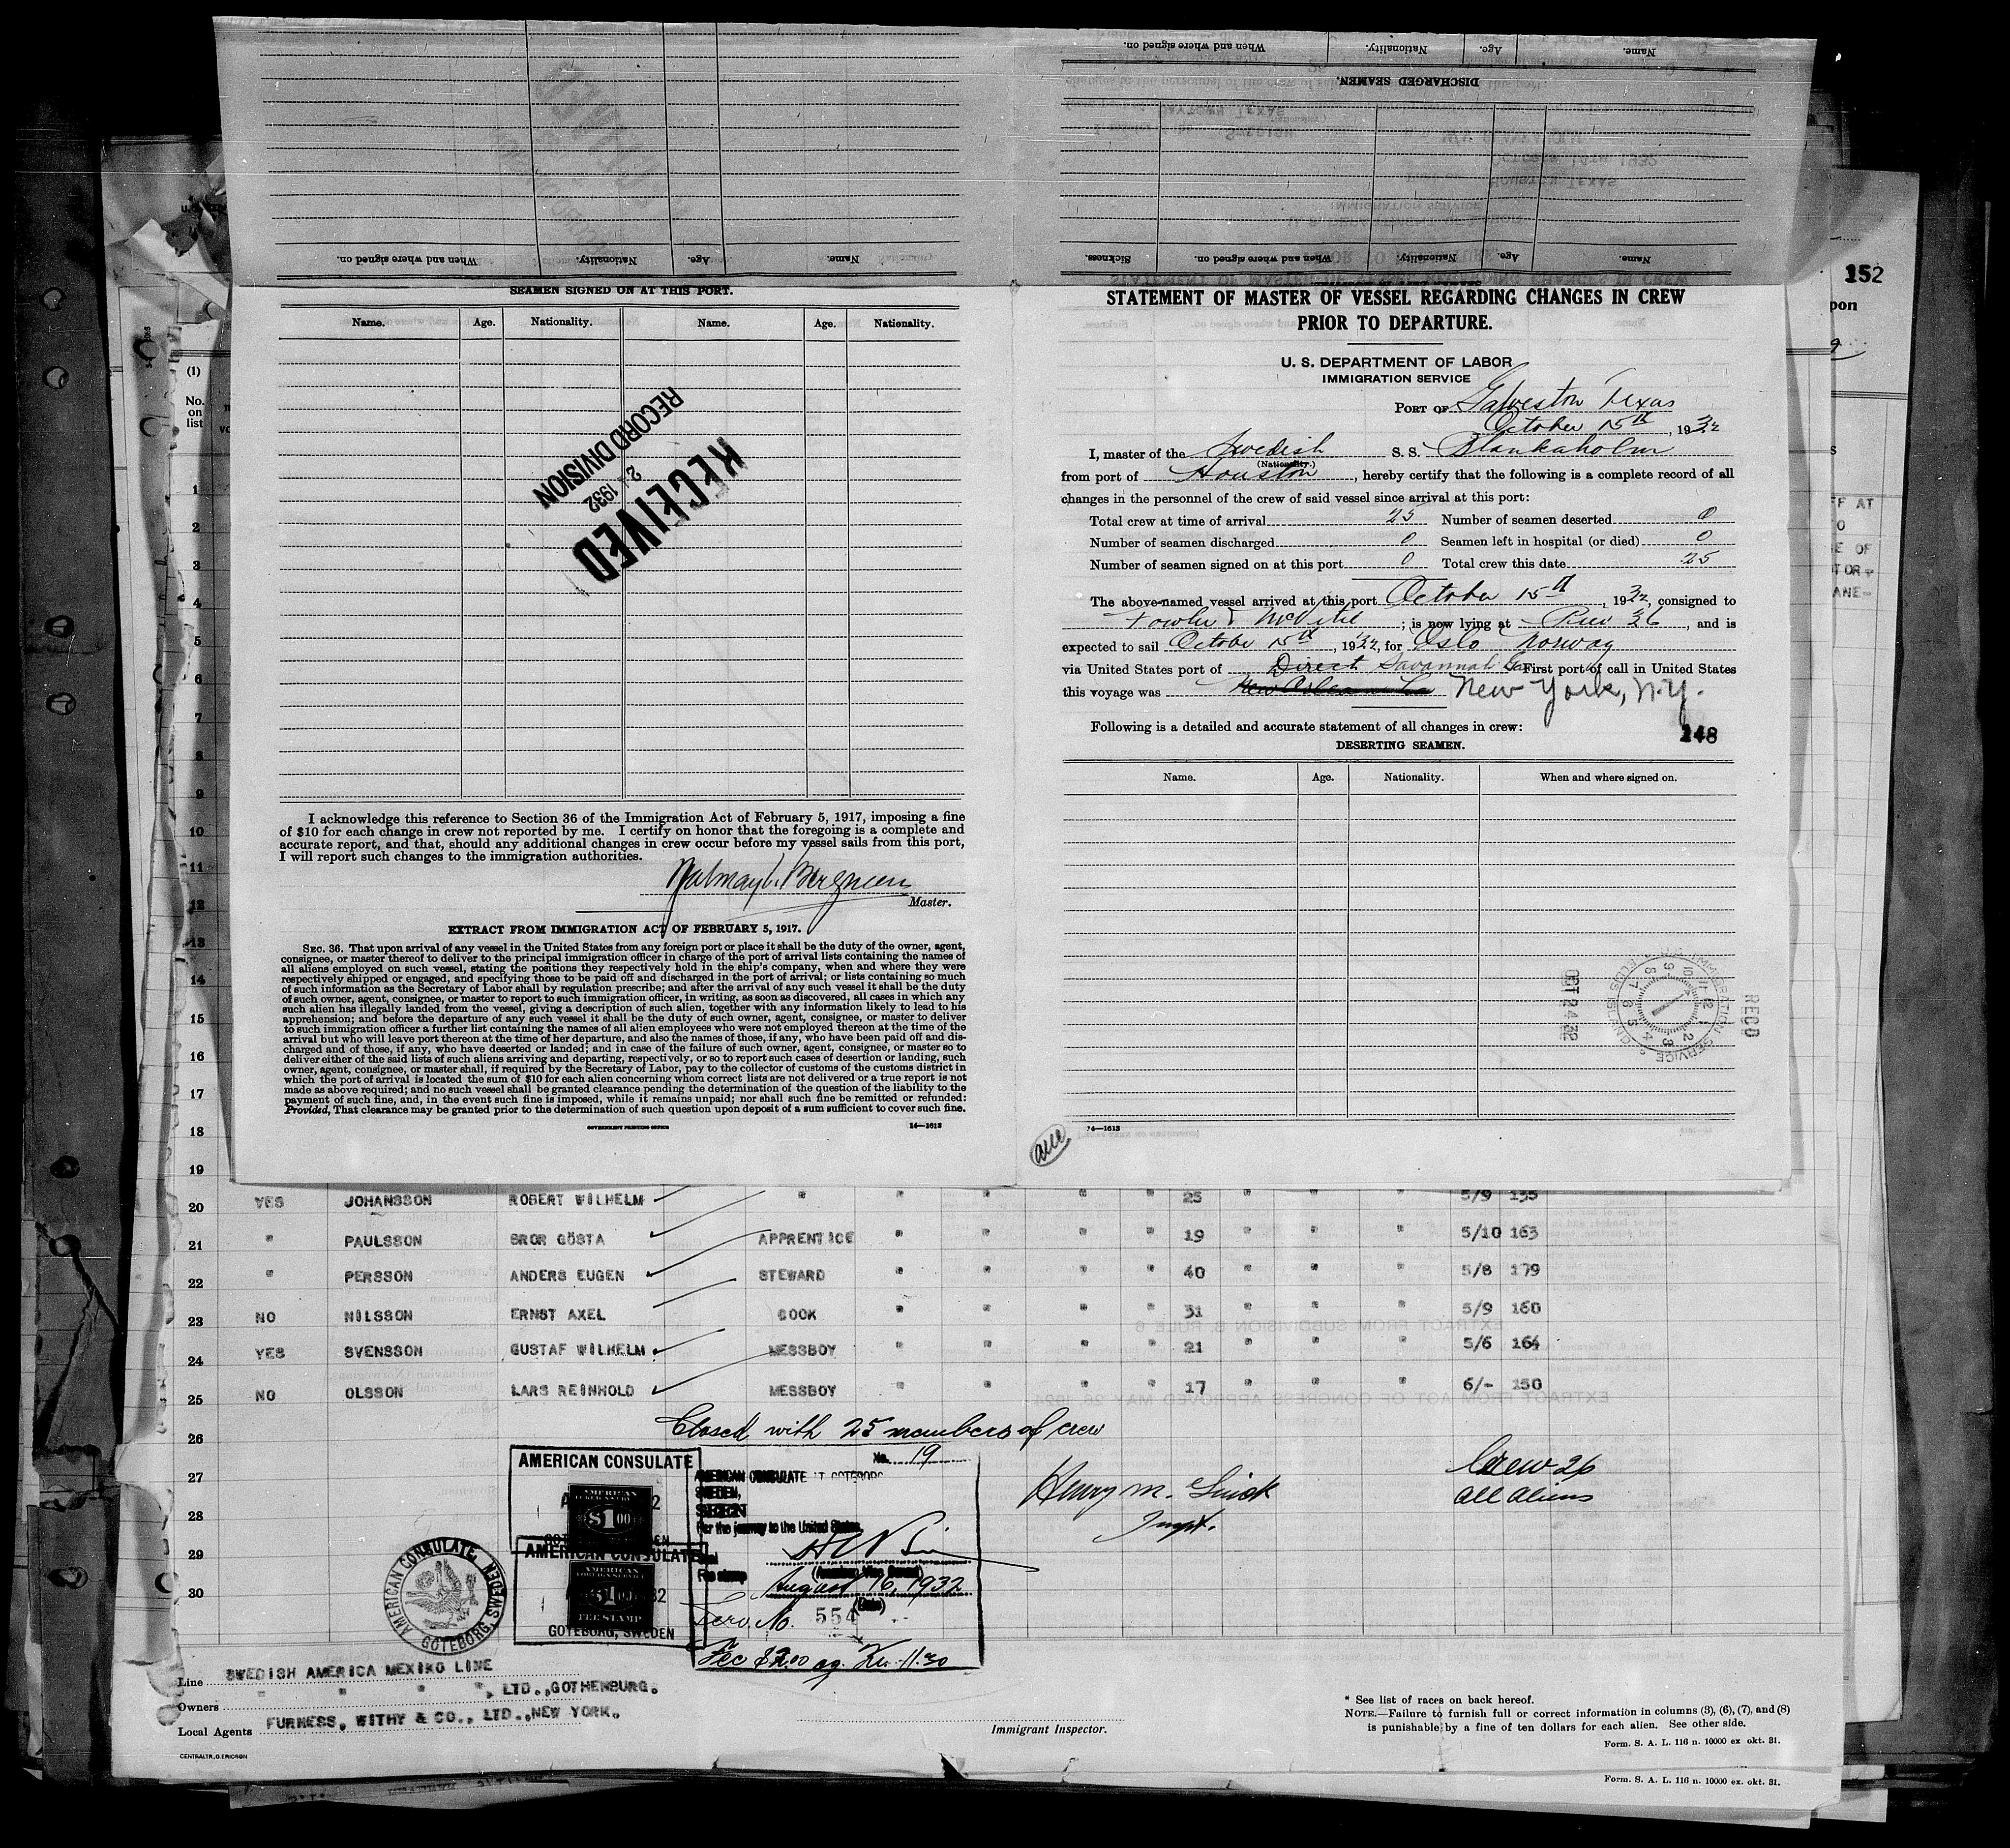 When and where signed on. Nationality. Age. Name.
When and where signed on. Nationality. Age. Name.
DISCHARGED SEAMEN.
Sickness. When and where signed on. Nationality. Age. Name.
152
(1)
No. on list
SEAMEN SIGNED ON AT THIS PORT.
Name. Age. Nationality. Name. Age. Nationality.
RECEIVED
1932
RECORD DIVISION
I acknowledge this reference to Section 36 of the Immigration Act of February 5, 1917, imposing a fine
of $10 for each change in crew not reported by me. I certify on honor that the foregoing is a complete and
accurate report, and that, should any additional changes in crew occur before my vessel sails from this port,
I will report such changes to the immigration authorities.
Master.
EXTRACT FROM IMMIGRATION ACT OF FEBRUARY 5, 1917.
SEC. 36. That upon arrival of any vessel in the United States from any foreign port or place it shall be the duty of the owner, agent,
consignee, or master thereof to deliver to the principal immigration officer in charge of the port of arrival lists containing the names of
all aliens employed on such vessel, stating the positions they respectively hold in the ship's company, when and where they were
respectively shipped or engaged, and specifying those to be paid off and discharged in the port of arrival; or lists containing so much
of such information as the Secretary of Labor shall by regulation prescribe; and after the arrival of any such vessel it shall be the duty
of such owner, agent, consignee, or master to report to such immigration officer, in writing, as soon as discovered, all cases in which any
such alien has illegally landed from the vessel, giving a description of such alien, together with any information likely to lead to his
apprehension; and before the departure of any such vessel it shall be the duty of such owner, agent, consignee, or master to deliver
to such immigration officer a further list containing the names of all alien employees who were not employed thereon at the time of the
arrival but who will leave port thereon at the time of her departure, and also the names of those, if any, who have been paid off and dis-
charged and of those, if any, who have deserted or landed; and in case of the failure of such owner, agent, consignee, or master so to
deliver either of the said lists of such aliens arriving and departing, respectively, or so to report such cases of desertion or landing, such
owner, agent, consignee, or master shall, if required by the Secretary of Labor, pay to the collector of customs of the customs district in
which the port of arrival is located the sum of $10 for each alien concerning whom correct lists are not delivered or a true report is not
made as above required; and no such vessel shall be granted clearance pending the determination of the question of the liability to the
payment of such fine, and, in the event such fine is imposed, while it remains unpaid; nor shall such fine be remitted or refunded:
Provided, That clearance may be granted prior to the determination of such question upon deposit of a sum sufficient to cover such fine.
GOVERNMENT PRINTING OFFICE 14—1613
STATEMENT OF MASTER OF VESSEL REGARDING CHANGES IN CREW
PRIOR TO DEPARTURE.
U. S. DEPARTMENT OF LABOR
IMMIGRATION SERVICE
PORT OF Galveston Texas
October 15th, 1932
I, master of the Swedish S. S. Blankaholm
(Nationality.)
from port of Houston, hereby certify that the following is a complete record of all
changes in the personnel of the crew of said vessel since arrival at this port:
Total crew at time of arrival 25 Number of seamen deserted 0
Number of seamen discharged 0 Seamen left in hospital (or died) 0
Number of seamen signed on at this port 0 Total crew this date 25
The above-named vessel arrived at this port October 15th, 1932, consigned to
Fowler & McVitie; is now lying at Pier 36, and is
expected to sail October 15th, 1932, for Oslo Norway
via United States port of Direct Savannah Ga. First port of call in United States
this voyage was New Orleans La New York, N.Y.
Following is a detailed and accurate statement of all changes in crew:
148
DESERTING SEAMEN.
Name. Age. Nationality. When and where signed on.
REC'D
IMMIGRATION SERVICE ELLIS ISLAND
OCT 24 32
14—1613
1
2
3
4
5
6
7
8
9
10
11
12
13
14
15
16
17
18
19
20 YES JOHANSSON ROBERT WILHELM " " " " " 25 " " " 5/9 135
21 " PAULSSON BROR GÖSTA APPRENTICE " " " " 19 " " " 5/10 163
22 " PERSSON ANDERS EUGEN STEWARD " " " " 40 " " " 5/8 179
23 NO NILSSON ERNST AXEL COOK " " " " 31 " " " 5/9 160
24 YES SVENSSON GUSTAF WILHELM MESSBOY " " " " 21 " " " 5/6 164
25 NO OLSSON LARS REINHOLD MESSBOY " " " " 17 " " " 6/- 150
26
27
28
29
30
Closed with 25 members of crew
AMERICAN CONSULATE
AMERICAN FOREIGN SERVICE $1.00
AMERICAN CONSULATE
AMERICAN FOREIGN SERVICE $1.00 FEE STAMP
GOTEBORG, SWEDEN
AMERICAN CONSULATE, GOTEBORG, SWEDEN
No. 19
AMERICAN CONSULATE AT GOTEBORG
SWEDEN,
For the journey to the United States
Seal
Fee stamp
(American Vice Consul)
August 16, 1932
(Date)
Serv. No. 554
Fee $2.00 eq. Kr. 11.30
Henry M.
Inspt.
Crew 26
all aliens
Line SWEDISH AMERICA MEXIKO LINE
Owners " " " ", LTD., GOTHENBURG.
Local Agents FURNESS, WITHY & CO., LTD., NEW YORK.
Immigrant Inspector.
CENTRALTR. G. ERICSON
* See list of races on back hereof.
NOTE.—Failure to furnish full or correct information in columns (3), (6), (7), and (8)
is punishable by a fine of ten dollars for each alien. See other side.
Form. S. A. L. 116 n. 10000 ex okt. 31.
Form. S. A. L. 116 n. 10000 ex. okt. 31.